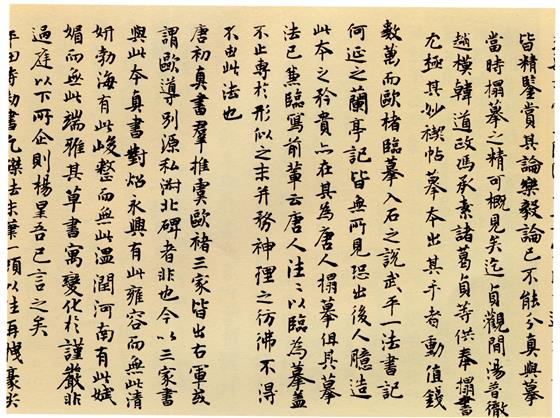 皆精鑒賞其論樂毅論已不能分真與摹
當時搨摹之精可概見矣迄貞觀間湯普徹
趙模韓道政馮承素諸葛貞等供奉搨書
尤極其妙禊帖摹本出其手者動值錢
數萬而歐褚臨摹入石之說武平一法書記
何延之蘭亭記皆無所見恐出後人臆造
此本之矜貴亦在其為唐人搨摹但其摹
法已兼臨寫前輩云唐人往〻以臨為摹蓋
不止專於形似之末并務神理之彷彿不得
不由此法也
唐初真書羣推虞歐褚三家皆出右軍或
謂歐導別源私淑北碑者非也今以三家書
與此本真書對炤永興有此雍容而無此清
妍勃海有此峻整而無此溫潤河南有此娬
媚而無此端雅其草書寓變化於謹嚴非
過庭以下所企則楊星吾已言之矣